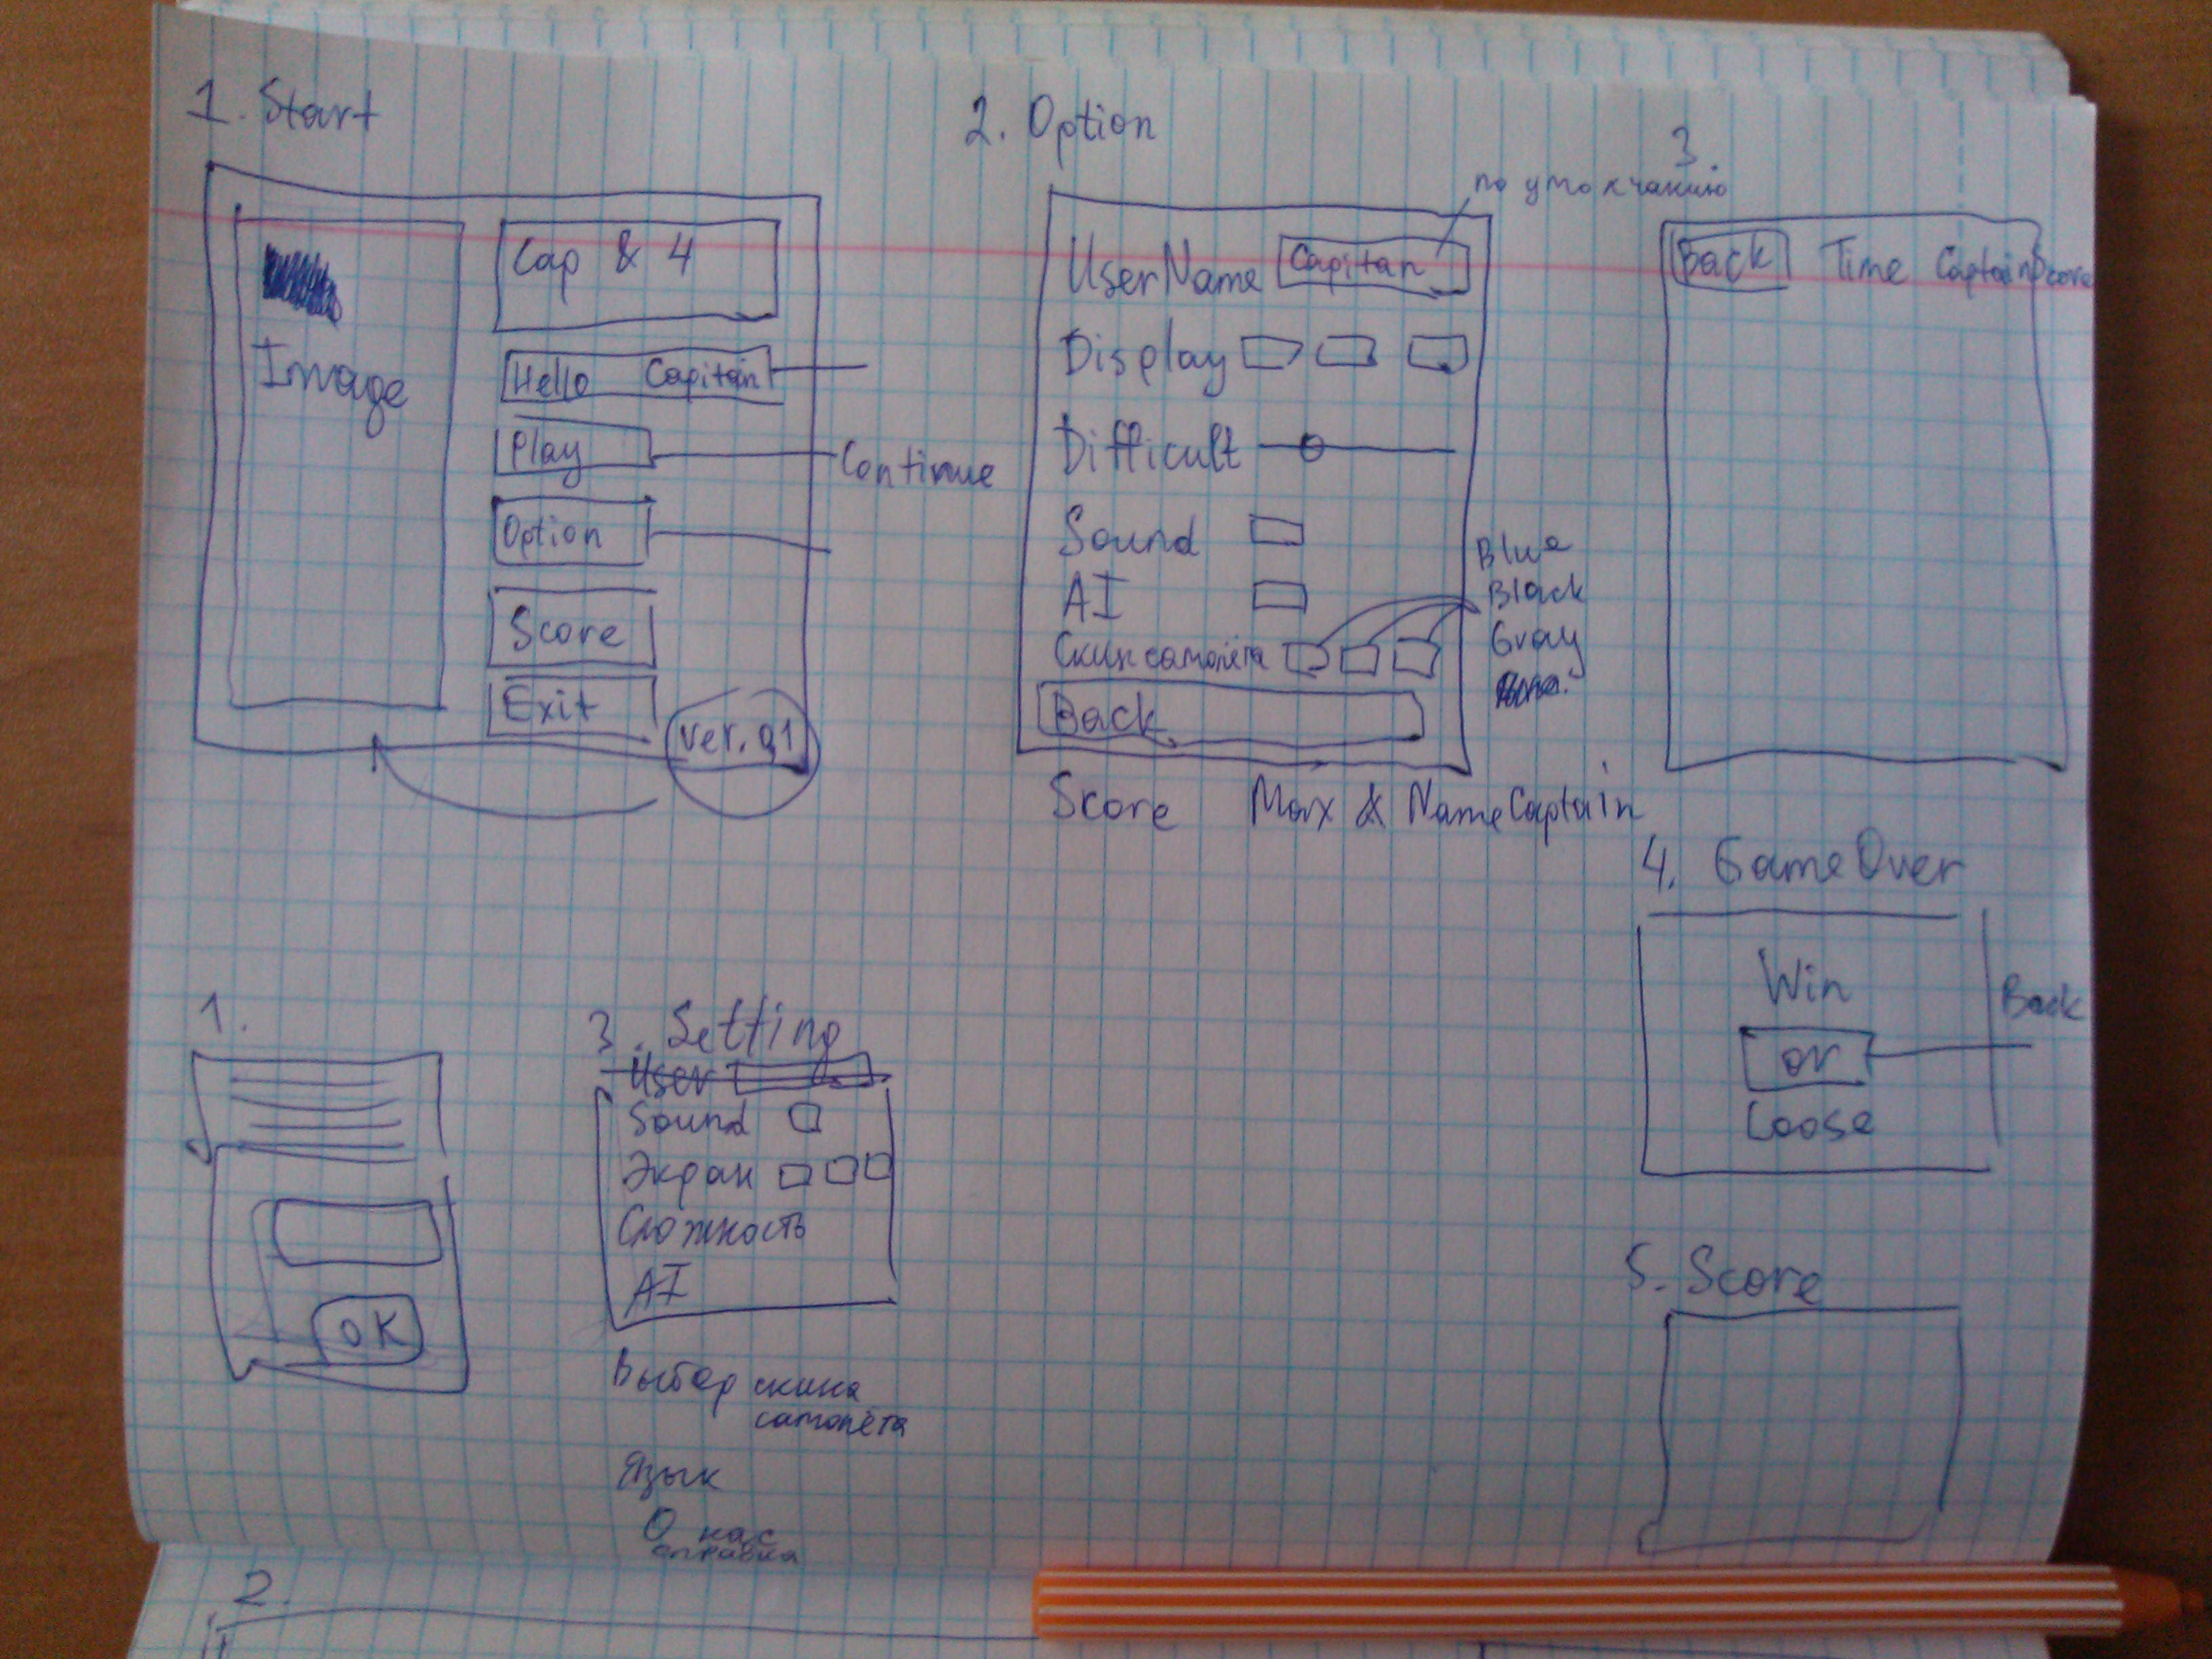 1. Start
Image
Cap & 4
Hello Capitan
Play
Continue
Option
Score
Exit
ver. 0.1
2. Option
по умолчанию
UserName Capitan
Display
Difficult
Sound
AI
Скин самолёта
Blue
Black
Gray
Back
Score Max & NameCaptain
3.
Back Time Captain Score
4. GameOver
Win
or
Loose
Back
5. Score
1.
OK
3. Setting
User
Sound
Экран
Сложность
AI
Выбор скина
самолёта
Язык
О нас
справка
2.